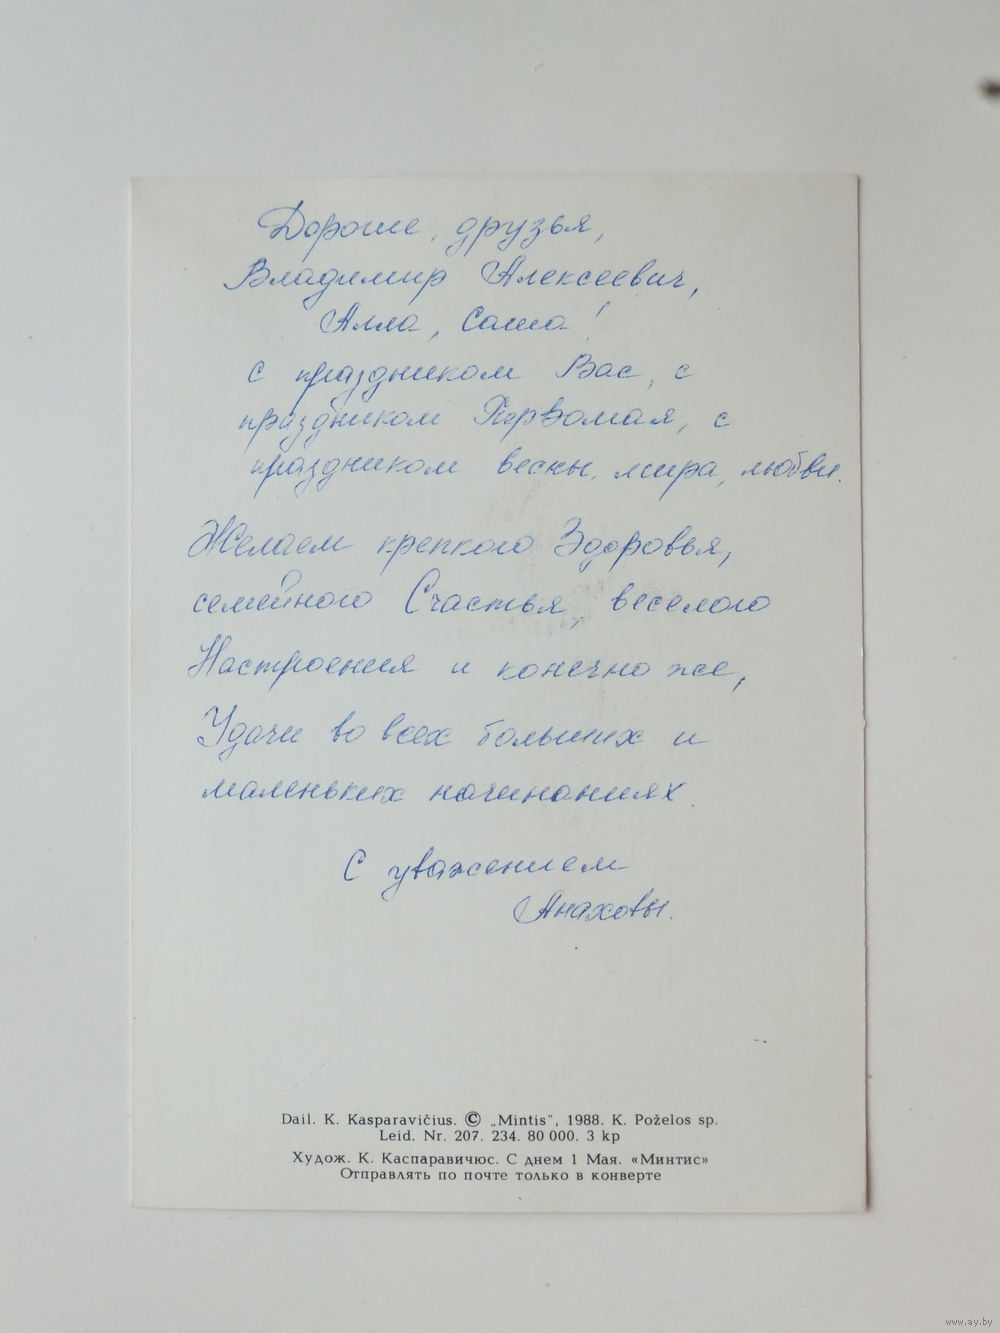 Дорогие, друзья,
Владимир Алексеевич,
Алла, Саша!
с праздником Вас, с
праздником Первомая, с
праздником весны, мира, любви.
Желаем крепкого Здоровья,
семейного Счастья, веселого
Настроения и конечно же,
Удачи во всех больших и
маленьких начинаниях.
С уважением
Анаховы.
Dail. K. Kasparavičius. © „Mintis“, 1988. K. Poželos sp.
Leid. Nr. 207. 234. 80 000. 3 kp
Худож. К. Каспаравичюс. С днем 1 Мая. «Минтис»
Отправлять по почте только в конверте
www.ay.by